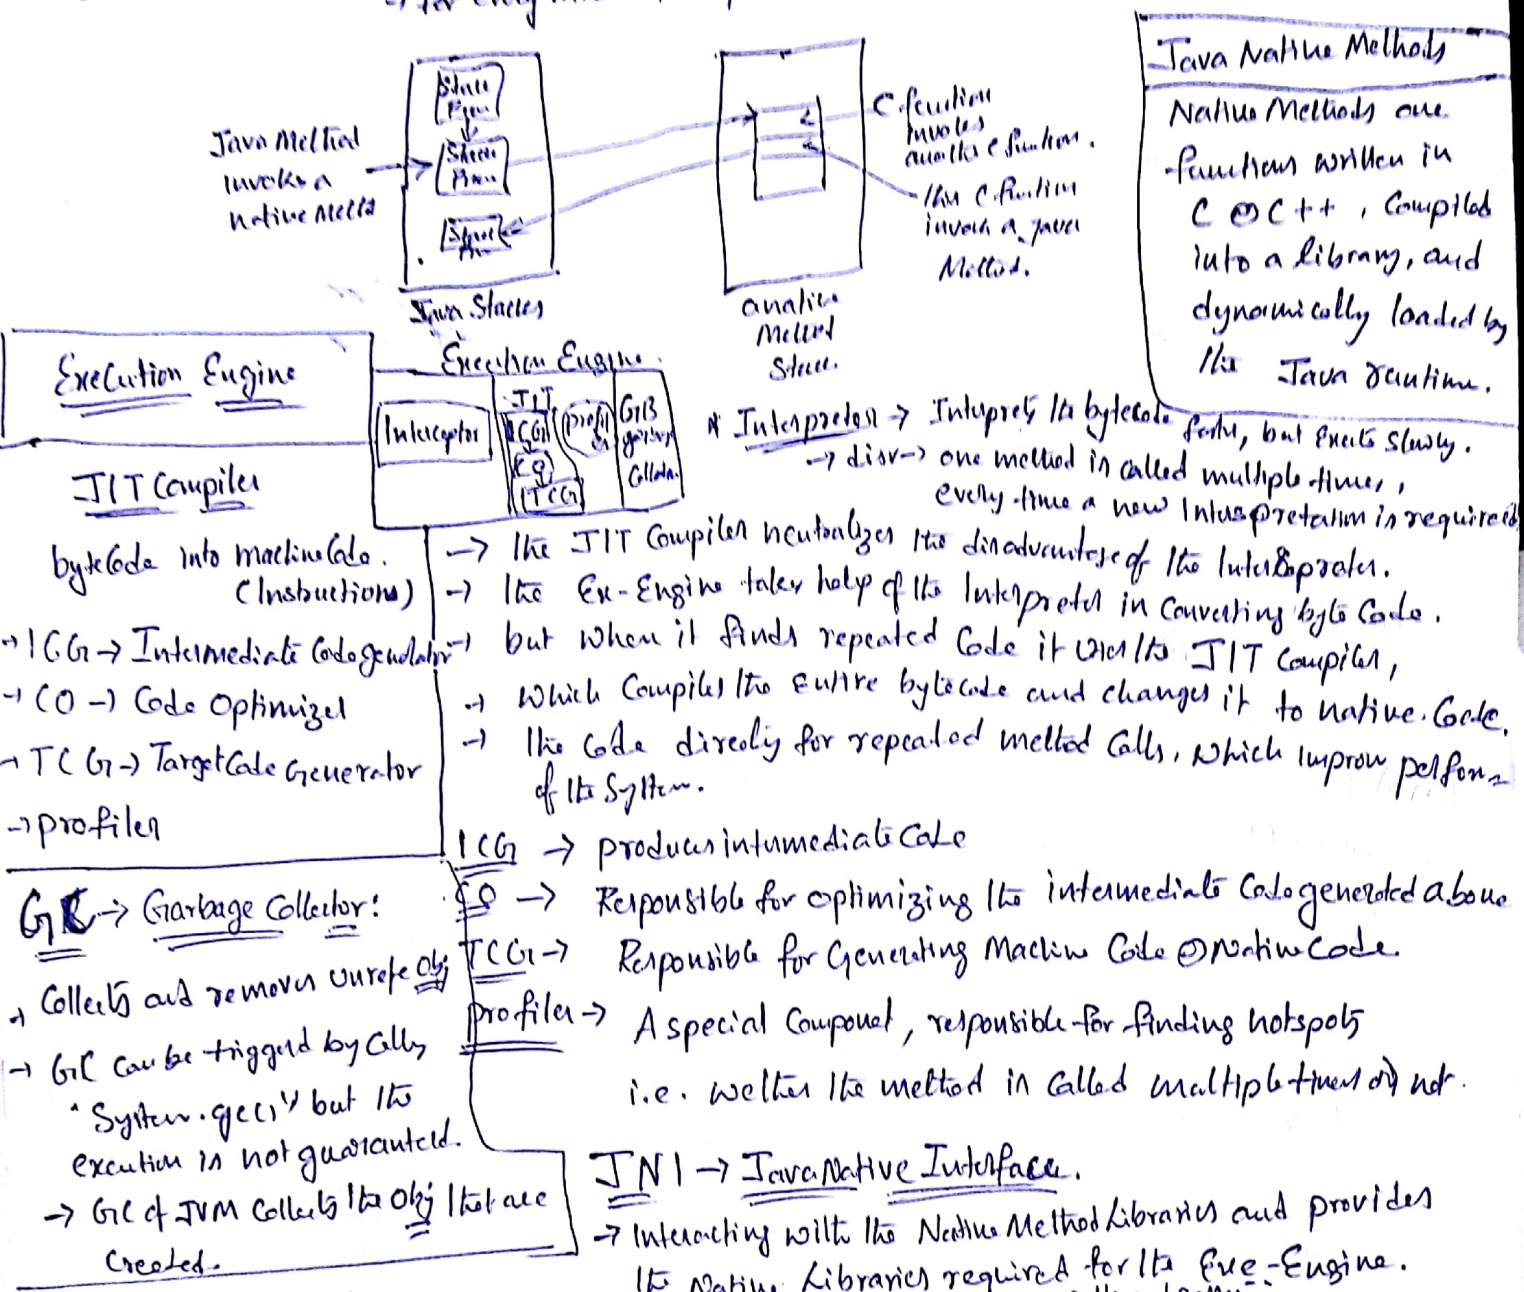 → for
Java Method
invokes a
native Meth
Stack
Fram
Stack
Fram
Stack
Java Stacks
C function
invokes
another c function.
this C function
invoke a java
Method.
a native
Method
Stack.
Java Native Methods
Native Methods are
functions written in
C or C++, Compiled
into a library, and
dynamically loaded by
the Java runtime.
Execution Engine
Execution Engine.
Interceptor
JIT
ICG
CO
TCG
profiler
GB
garbage
Collector.
* Interpreter → Interprets the bytecode faster, but Exects slowly.
→ disv → one method is called multiple times,
every time a new Interpretation is required
JIT Compiler
bytecode into machine Code.
(Instructions)
→ ICG → Intermediate Code generator
→ CO → Code Optimizer
→ TCG → Target Code Generator
→ profiler
→ the JIT Compiler neutralizes the disadvantage of the Interpreter.
→ the Ex-Engine takes help of the Interpreter in Converting byte Code.
→ but when it finds repeated Code it uses the JIT Compiler,
→ which Compiles the entire bytecode and changes it to native Code.
→ the Code direcly for repeated method Calls, which improve perfom
of the System.
ICG → produces intermediate Code
CO → Responsible for optimizing the intermediate Code generated above
TCG → Responsible for Generating Machine Code or Native Code.
profiler → A special Component, responsible for finding hotspots
i.e. wether the method is Called multiple times or not.
GC → Garbage Collector:
→ Collects and removes unrefe obj
→ GC can be triggerd by Calling
"System.gc()" but the
excution is not guaranteed.
→ GC of JVM Collects the Obj that are
Created.
JNI → Java Native Interface.
→ Interacting with the Native Method Libraries and provides
the Native Libraries required for the Exe-Engine.